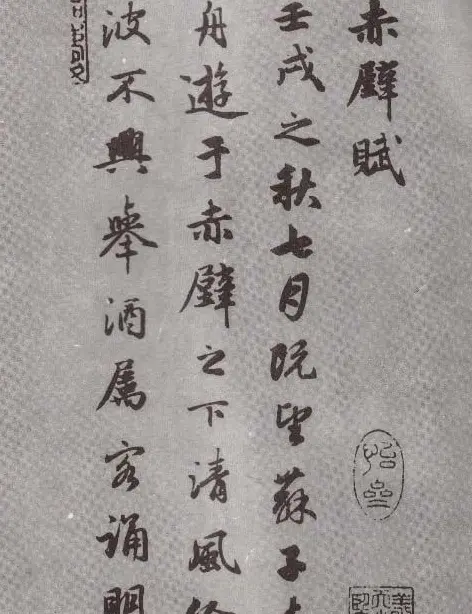 赤壁賦
壬戌之秋七月既望蘇子
舟遊于赤壁之下清風
波不興舉酒属客誦明